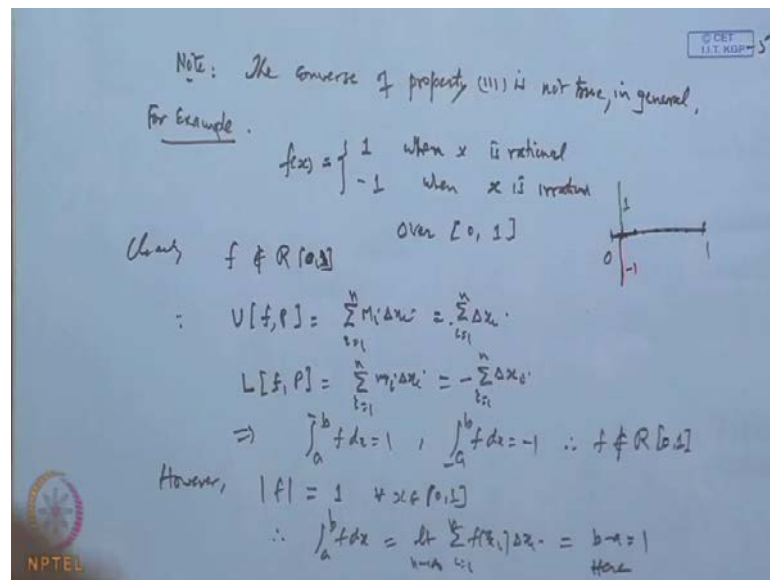 © CET
I.I.T. KGP
Note: The converse of property (III) is not true, in general,
For Example.
f(x) = { 1 when x is rational
-1 when x is irration
over [0, 1]
1
0
-1
1
Clearly f ∉ R[0,1]
∵ U[f,P] = ∑_{i=1}^{n} M_i Δx_i = ∑_{i=1}^{n} Δx_i
L[f,P] = ∑_{i=1}^{n} m_i Δx_i = -∑_{i=1}^{n} Δx_i
⇒ ∫_a^{-b} f dx = 1 , ∫_{-a}^b f dx = -1 ∴ f ∉ R[0,1]
However, |f| = 1 ∀ x ∈ [0,1]
∴ ∫_a^b f dx = lt ∑_{i=1}^{n} f(ξ_i) Δx_i = b-a = 1
Here
NPTEL